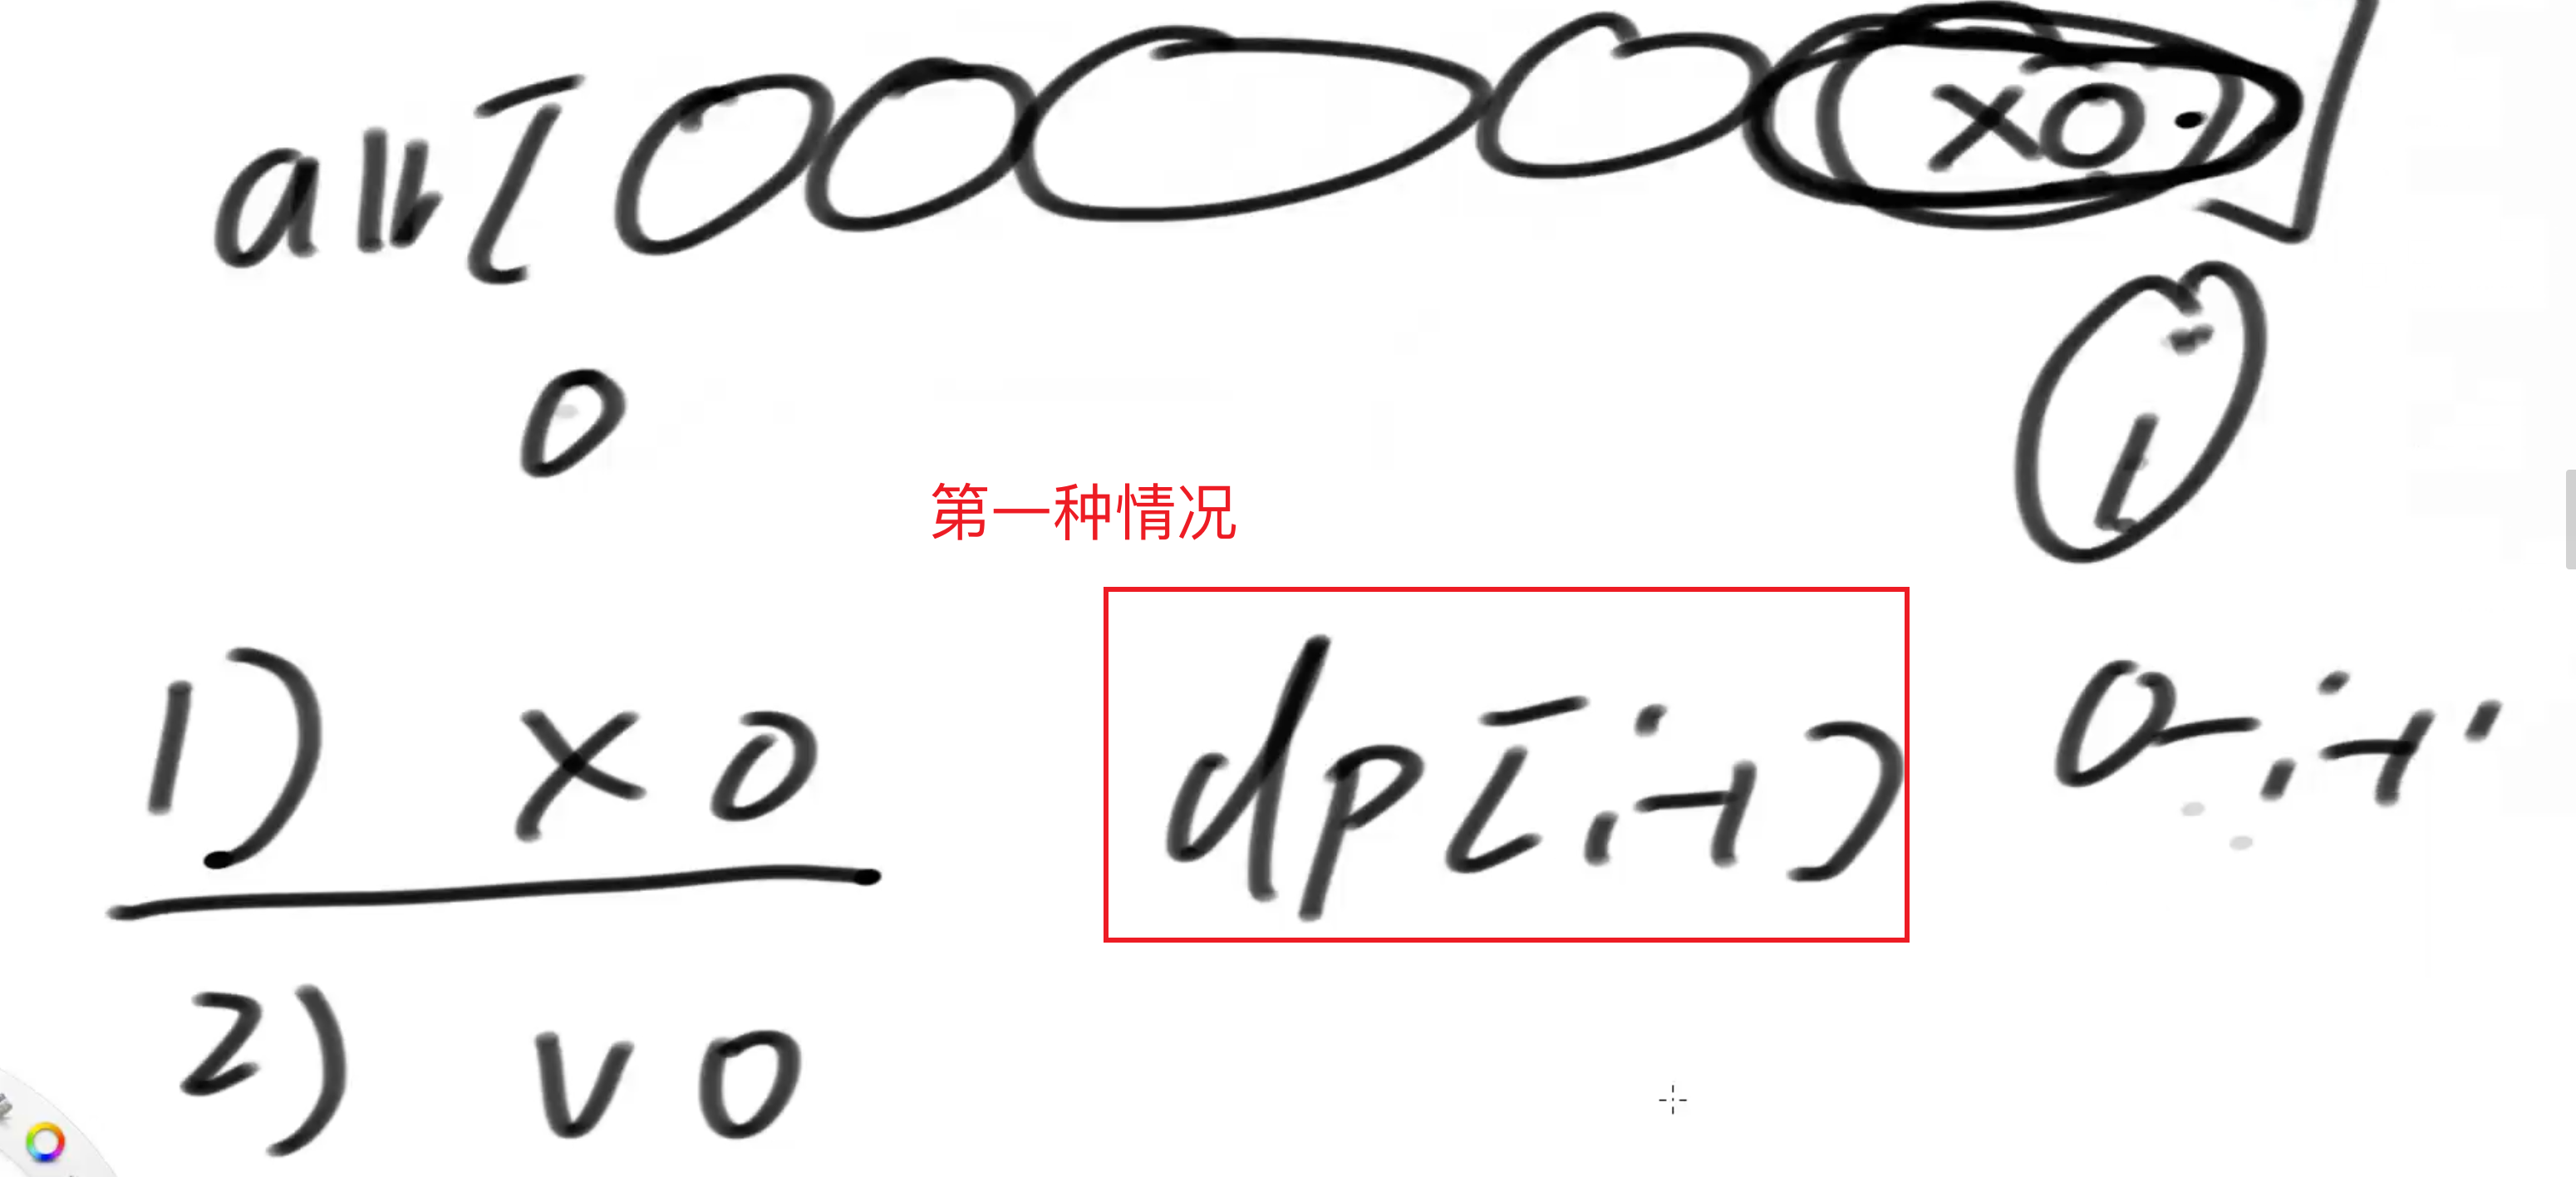 arr[ XO ]
0 i
第一种情况
1) XO dp[i-1] 0-i-1
2) VO